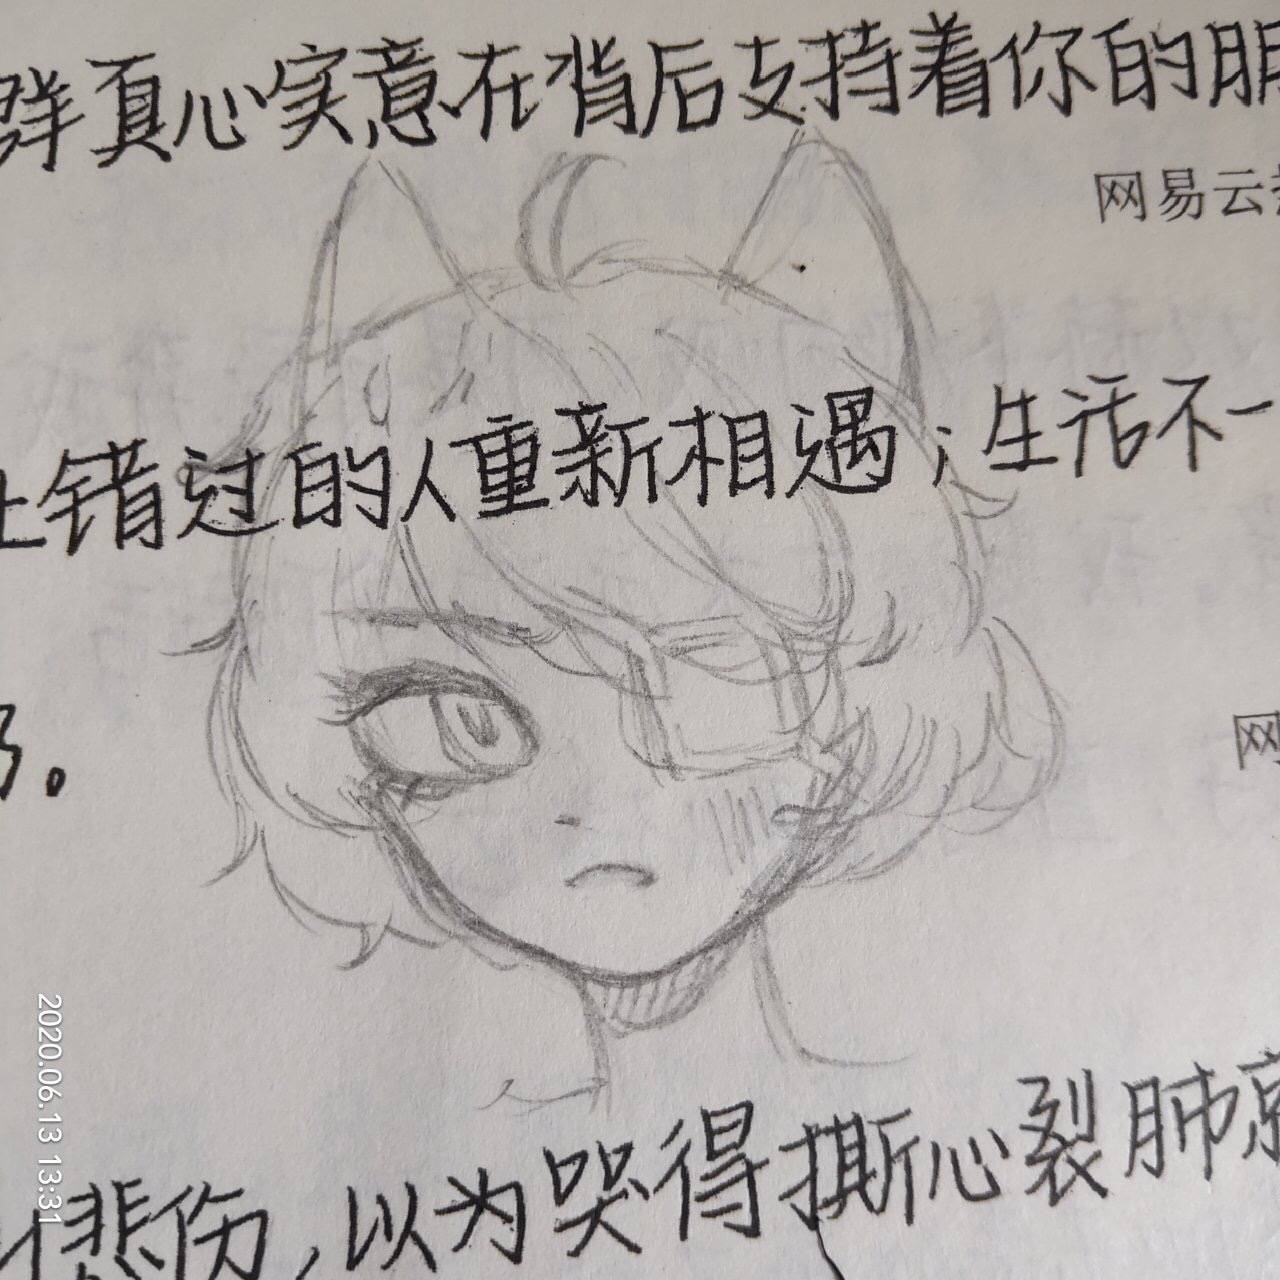 群真心实意在背后支持着你的朋
网易云热
让错过的人重新相遇；生活不一
网
。
悲伤，以为哭得撕心裂肺就
2020.06.13 13:31